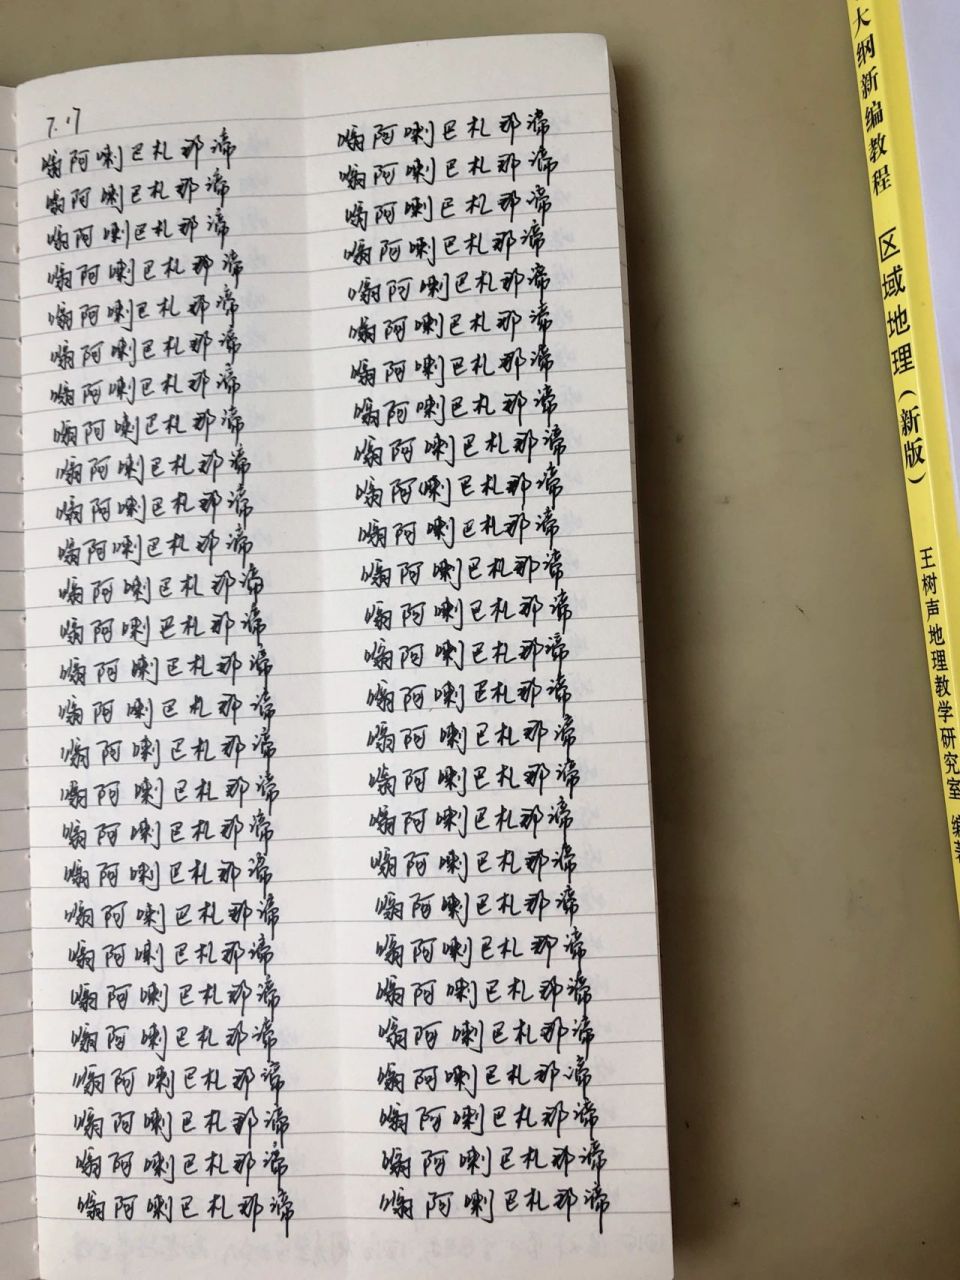 7.17
嗡阿喇巴札那谛
嗡阿喇巴札那谛
嗡阿喇巴札那谛
嗡阿喇巴札那谛
嗡阿喇巴札那谛
嗡阿喇巴札那谛
嗡阿喇巴札那谛
嗡阿喇巴札那谛
嗡阿喇巴札那谛
嗡阿喇巴札那谛
嗡阿喇巴札那谛
嗡阿喇巴札那谛
嗡阿喇巴札那谛
嗡阿喇巴札那谛
嗡阿喇巴札那谛
嗡阿喇巴札那谛
嗡阿喇巴札那谛
嗡阿喇巴札那谛
嗡阿喇巴札那谛
嗡阿喇巴札那谛
嗡阿喇巴札那谛
嗡阿喇巴札那谛
嗡阿喇巴札那谛
嗡阿喇巴札那谛
嗡阿喇巴札那谛
嗡阿喇巴札那谛
嗡阿喇巴札那谛
嗡阿喇巴札那谛
嗡阿喇巴札那谛
嗡阿喇巴札那谛
嗡阿喇巴札那谛
嗡阿喇巴札那谛
嗡阿喇巴札那谛
嗡阿喇巴札那谛
嗡阿喇巴札那谛
嗡阿喇巴札那谛
嗡阿喇巴札那谛
嗡阿喇巴札那谛
嗡阿喇巴札那谛
嗡阿喇巴札那谛
嗡阿喇巴札那谛
嗡阿喇巴札那谛
嗡阿喇巴札那谛
嗡阿喇巴札那谛
嗡阿喇巴札那谛
嗡阿喇巴札那谛
嗡阿喇巴札那谛
嗡阿喇巴札那谛
嗡阿喇巴札那谛
嗡阿喇巴札那谛
嗡阿喇巴札那谛
嗡阿喇巴札那谛
嗡阿喇巴札那谛
嗡阿喇巴札那谛
大纲新编教程 区域地理（新版） 王树声地理教学研究室 编著